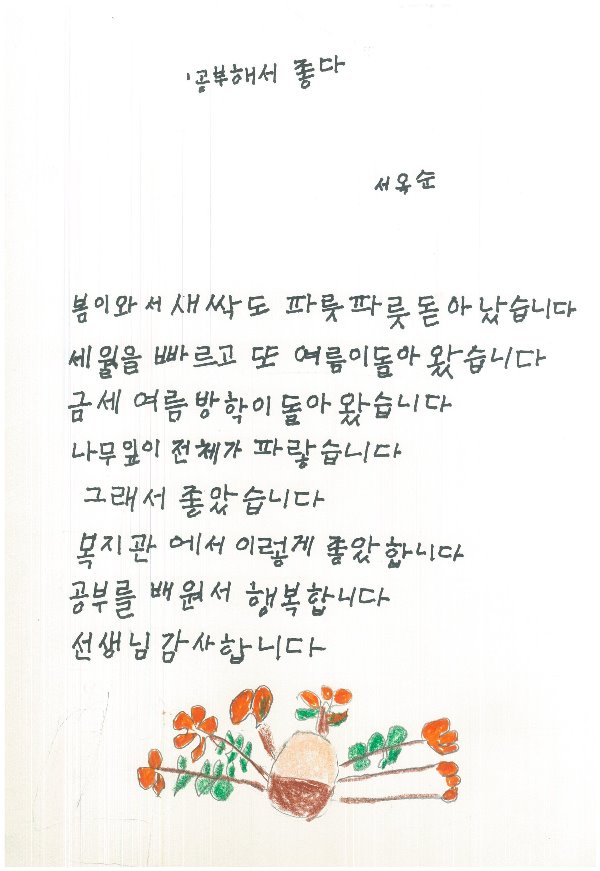 공부해서 좋다
서옥순
봄이와서 새싹도 파릇파릇돋아났습니다
세월을 빠르고 또 여름이돌아왔습니다
금세 여름방학이 돌아 왔습니다
나무잎이 전체가 파랗습니다
그래서 좋았습니다
복지관 에서 이렇게 좋았합니다
공부를 배워서 행복합니다
선생님 감사합니다